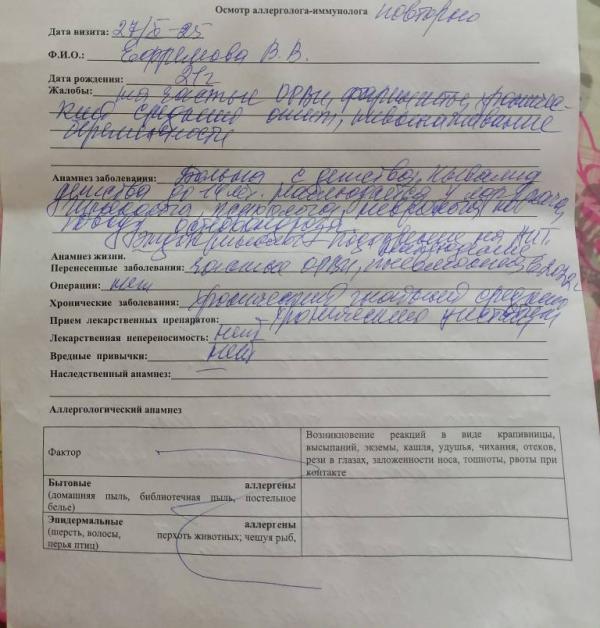 Осмотр аллерголога-иммунолога повторно
Дата визита: 27/X-25
Ф.И.О.: Ефремова В.В.
Дата рождения: 21г
Жалобы: на частые ОРВИ, фарингиты, хрониче-
ский средний отит, невынашивание
беременности
Анамнез заболевания: Больна с детства,
детства до 14 лет наблюдается у лор врача,
Анамнез жизни.
Перенесенные заболевания: частые ОРВИ, пневмония в 2022г
Операции: нет
Хронические заболевания: Хронический гнойный средний
Прием лекарственных препаратов: хронический
Лекарственная непереносимость: нет
Вредные привычки: нет
Наследственный анамнез:
Аллергологический анамнез
Фактор
Возникновение реакций в виде крапивницы,
высыпаний, экземы, кашля, удушья, чихания, отеков,
рези в глазах, заложенности носа, тошноты, рвоты при
контакте
Бытовые аллергены
(домашняя пыль, библиотечная пыль, постельное
белье)
Эпидермальные аллергены
(шерсть, волосы, перхоть животных; чешуя рыб,
перья птиц)